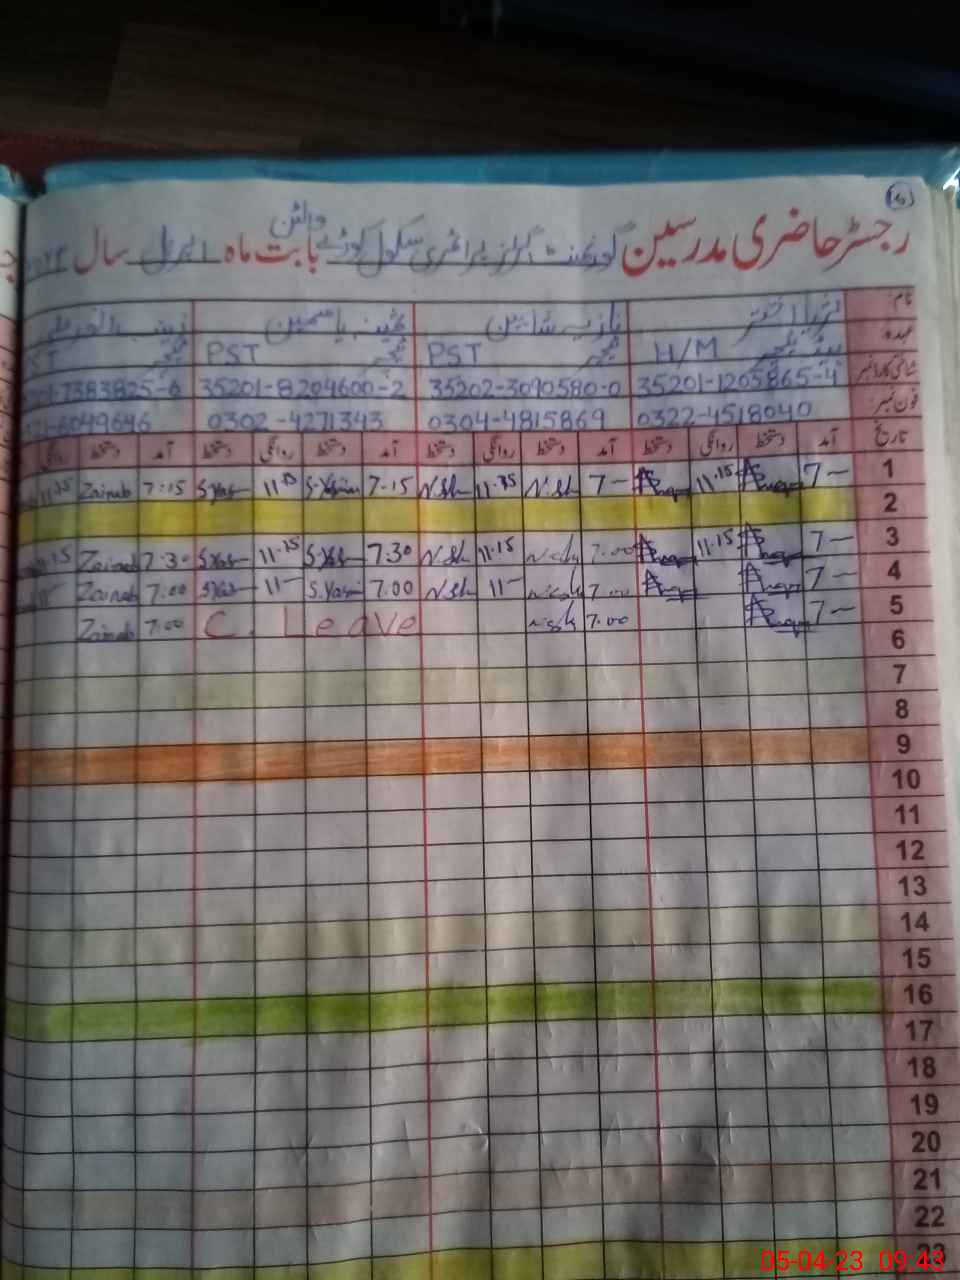 رجسٹر حاضری مدرسین گورنمنٹ گرلز پرائمری سکول کوڑے والٹن بابت ماہ اپریل سال
نام:
ثریا اختر نازیہ شاہین ثمینہ یاسمین زینب
عہدہ:
ہیڈ ٹیچر H/M ٹیچر PST ٹیچر PST ٹیچر
شناختی کارڈ نمبر
35201-1205865-4 35202-3090580-0 35201-8204600-2 7383825-6
فون نمبر:
0322-4518040 0304-4815869 0302-4271343 6049646
تاریخ آمد دستخط روانگی دستخط آمد دستخط روانگی دستخط آمد دستخط روانگی دستخط آمد دستخط روانگی
1 7 11.15 7 N.Sh 11.15 N.Sh 7.15 S.Yasmin 11.15 S.Yas 7:15 Zainab 11.15
2
3 7 11.15 7.00 11.15 N.Sh 7.30 S.Yas 11.15 S.Yas 7.30 Zainab
4 7 7.00 11 N.Sh 7.00 S.Yasmin 11 S.Yas 7.00 Zainab
5 7 7.00 C. Leave 7.00 Zainab
6
7
8
9
10
11
12
13
14
15
16
17
18
19
20
21
22
23
05-04-23 09:43